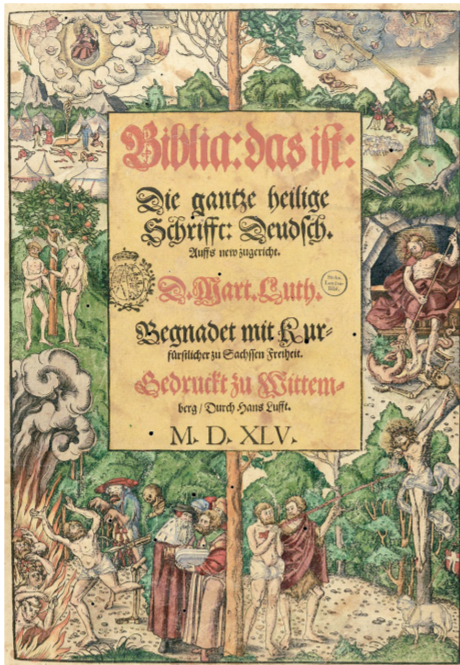 Biblia: das ist:
Die gantze heilige
Schrifft: Deudsch.
Auffs new zugericht.
D. Mart. Luth.
Begnadet mit Kur-
fürstlicher zu Sachssen Freiheit.
Gedruckt zu Wittem-
berg / Durch Hans Lufft.
M. D. XLV.